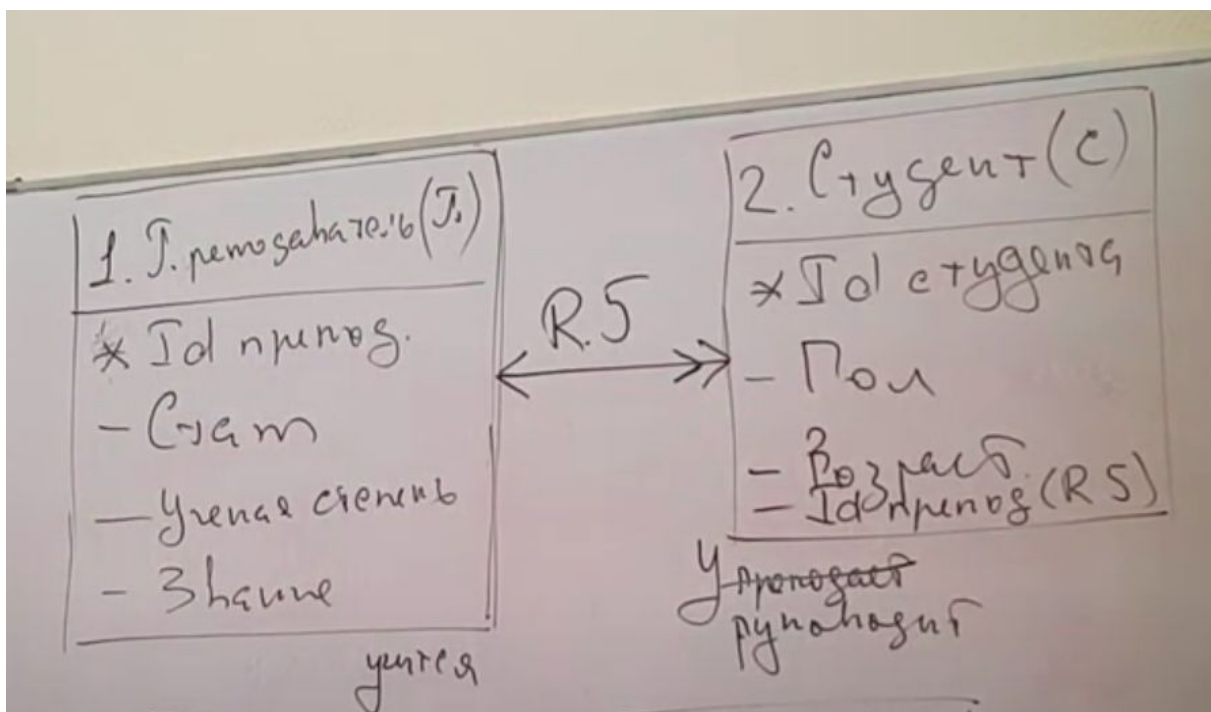 1. Преподаватель (П)
* Id препод.
- Стаж
- Ученая степень
- Звание
учится
R5
2. Студент (С)
* Id студента
- Пол
- Возраст
- Id препод (R5)
преподаёт
руководит